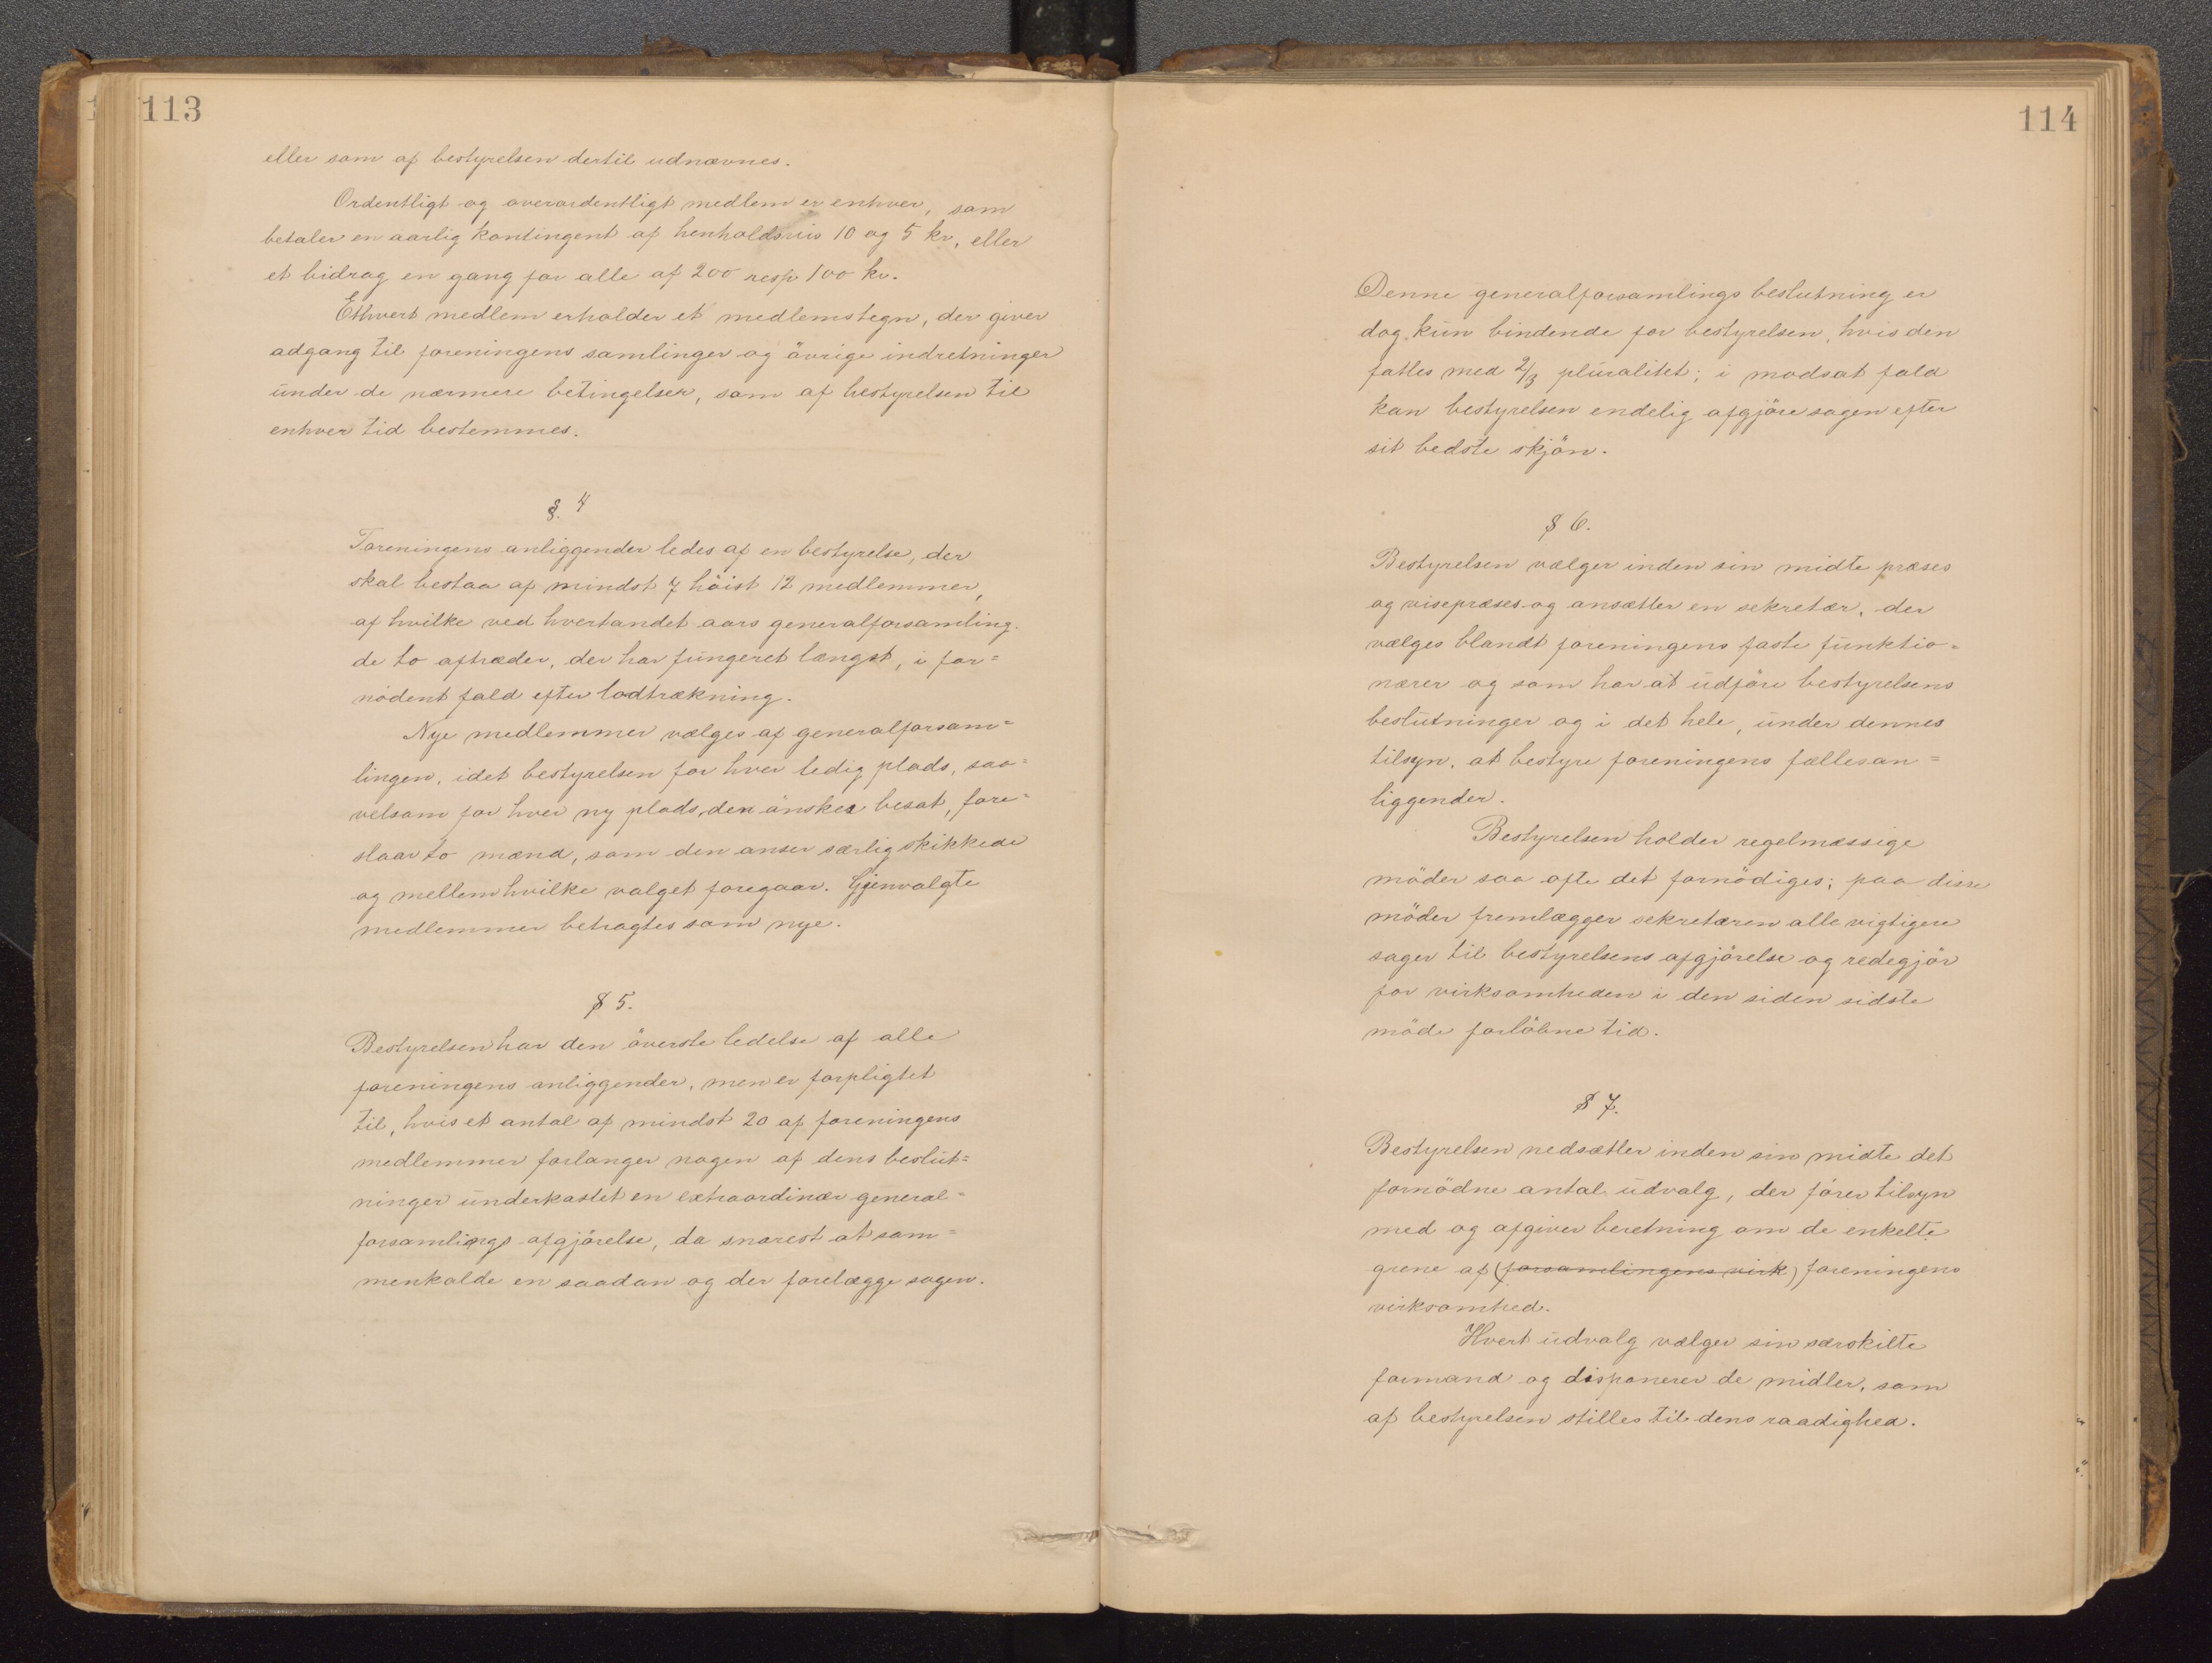 113
eller som af bestyrelsen dertil udnævnes.
Ordentligt og overordentligt medlem er enhver, som
betaler en aarlig kontingent af henholdsvis 10 og 5 kr, eller
et bidrag en gang for alle af 200 resp 100 kr.
Ethvert medlem erholder et medlemstegn, der giver
adgang til foreningens samlinger og övrige indretninger
under de nærmere betingelser, som af bestyrelsen til
enhver tid bestemmes.
§. 4
Foreningens anliggender ledes af en bestyrelse, der
skal bestaa af mindst 7 höist 12 medlemmer,
af hvilke ved hvertandet aars generalforsamling.
de to aftræder, der har fungeret længst, i for=
nödent fald efter lodtrækning.
Nye medlemmer vælges af generalforsam=
lingen, idet bestyrelsen for hver ledig plads, saa=
velsom for hver ny plads, den önsker besat, fore=
slaar to mænd, som den anser særlig skikkede
og mellem hvilke valget foregaar. Gjenvalgte
medlemmer betragtes som nye.
§ 5.
Bestyrelsen har den överste ledelse af alle
foreningens anliggender, men er forpligtet
til, hvis et antal af mindst 20 af foreningens
medlemmer forlanger nogen af dens beslut=
ninger underkastet en extraordinær general=
forsamlings afgjörelse, da snarest at sam=
menkalde en saadan og der forelægge sagen.
114
Denne generalforsamlings beslutning er
dog kun bindende for bestyrelsen, hvis den
fattes med 2/3 pluralitet; i modsat fald
kan bestyrelsen endelig afgjöre sagen efter
sit bedste skjön.
§ 6.
Bestyrelsen vælger inden sin midte præses
og visepræses og ansætter en sekretær, der
vælges blandt foreningens faste funktio=
nærer og som har at udföre bestyrelsens
beslutninger og i det hele, under dennes
tilsyn, at bestyre foreningens fællesan=
liggender.
Bestyrelsen holder regelmæssige
möder saa ofte det fornödiges; paa disse
möder fremlægger sekretæren alle vigtigere
sager til bestyrelsens afgjörelse og redegjör
for virksomheden i den siden sidste
möde forlöbne tid.
§ 7.
Bestyrelsen nedsætter inden sin midte det
fornödne antal udvalg, der förer tilsyn
med og afgiver beretning om de enkelte
grene af (forsamlingens virk) foreningens
virksomhed.
Hvert udvalg vælger sin særskilte
formand og disponerer de midler, som
af bestyrelsen stilles til dens raadighed.